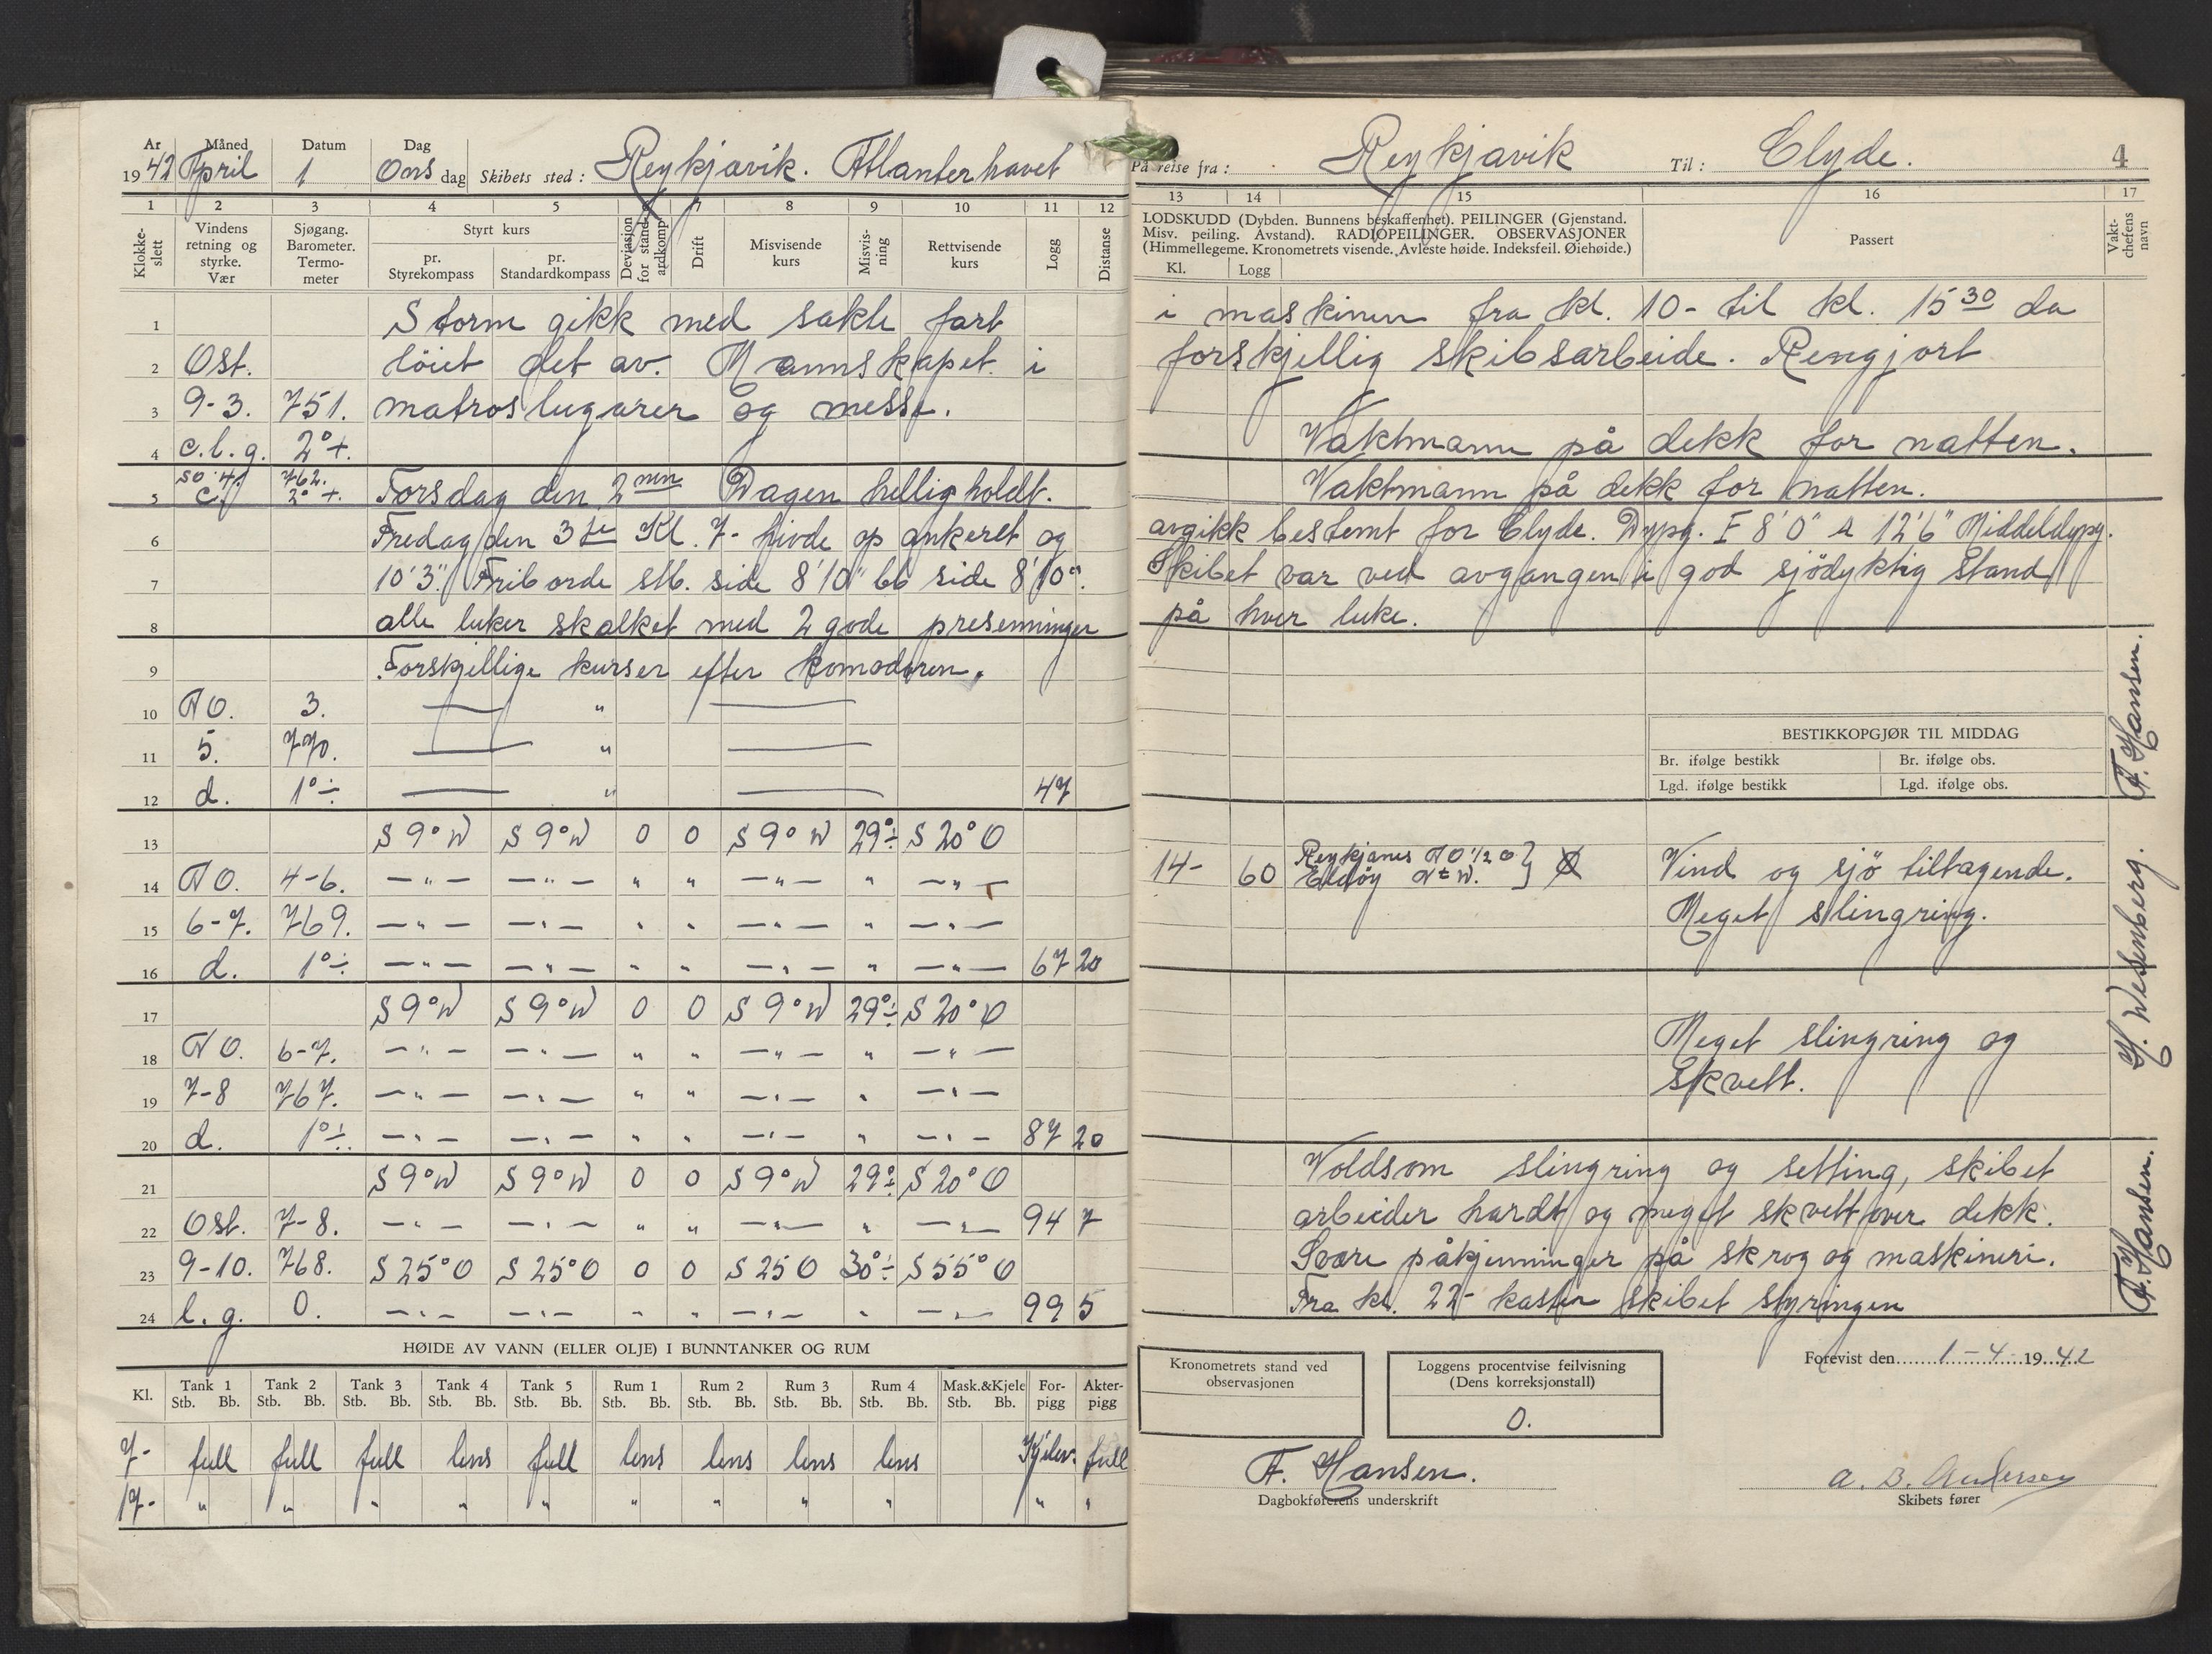 År Måned Datum Dag
1942 April 1 Onsdag Skibets sted: Reykjavik. Atlanterhavet På reise fra: Reykjavik Til: Clyde. 4
1 2 3 4 5 6 7 8 9 10 11 12 13 14 15 16 17
Klokkeslett
Vindens retning og styrke. Vær
Sjøgang. Barometer. Termometer
Styrt kurs
pr. Styrekompass
pr. Standardkompass
Deviasjon for standardkomp
Drift
Misvisende kurs
Misvisning
Rettvisende kurs
Logg
Distanse
LODSKUDD (Dybden. Bunnens beskaffenhet). PEILINGER (Gjenstand.
Misv. peiling. Avstand). RADIOPEILINGER. OBSERVASJONER
(Himmellegeme. Kronometrets visende. Avleste høide. Indeksfeil. Øiehøide.)
Kl. Logg
Passert
Vaktchefens navn
1 Storm gikk med sakte fart i maskinen fra kl. 10- til kl. 15 30 da
2 Ost. löiet det av. Mannskapet i forskjellig skibsarbeide. Rengjort
3 9-3. 751. matroslugarer og messe.
4 c.l.g. 2°+. Vaktmann på dekk for natten.
5 SO.4. c. 762. 2°+. Torsdag den 2nn Dagen helligholdt. Vaktmann på dekk for natten.
6 Fredag den 3je Kl. 7- hivde op ankeret og avgikk bestemt for Clyde. Dypg. F 8'0" A 12'6" Middeldypg.
7 10'3". Friborde stb. side 8'10" bb side 8'10". Skibet var ved avgangen i god sjödyktig stand
8 alle luker skalket med 2 gode presenninger på hver luke.
9 Forskjellige kurser efter komodoren.
10 NO. 3. — " —
11 5. 770. — " —
12 d. 1°÷ — " — 47
BESTIKKOPGJØR TIL MIDDAG
Br. ifølge bestikk Br. ifølge obs.
Lgd. ifølge bestikk Lgd. ifølge obs.
F. Hansen.
13 S 9° W S 9° W 0 0 S 9° W 29°÷ S 20° O
14 NO. 4-6. —"— —"— " " —"— " —"— 14- 60 Reykjanes NO 1/2 O Eldöy N t W. } Vind og sjö tiltagende.
15 6-7. 769. —"— —"— " " —"— " —"— Meget slingring.
16 d. 1°÷ —"— —"— " " —"— " —"— 67 20
17 S 9° W S 9° W 0 0 S 9° W 29°÷ S 20° O
18 NO. 6-7. —"— —"— " " —"— " —"— Meget slingring og
19 7-8 767. —"— —"— " " —"— " —"— skvett.
20 d. 1°÷. —"— —"— " " —"— " —"— 87 20
H. Wesenberg.
21 S 9° W S 9° W 0 0 S 9° W 29°÷ S 20° O Voldsom slingring og setting, skibet
22 Ost. 7-8. —"— —"— " " —"— " —"— 94 7 arbeider hardt og meget skvett over dekk.
23 9-10. 768. S 25° O S 25° O 0 0 S 25 O 30°÷ S 55° O Svære påkjenninger på skrog og maskineri.
24 l.g. 0. —"— —"— " " —"— " —"— 99 5 Fra kl. 22- kaster skibet styringen
F. Hansen.
HØIDE AV VANN (ELLER OLJE) I BUNNTANKER OG RUM
Kl. Tank 1 Stb. Bb. Tank 2 Stb. Bb. Tank 3 Stb. Bb. Tank 4 Stb. Bb. Tank 5 Stb. Bb. Rum 1 Stb. Bb. Rum 2 Stb. Bb. Rum 3 Stb. Bb. Rum 4 Stb. Bb. Mask.&Kjele Stb. Bb. Forpigg Akterpigg
7- full full full lens full lens lens lens lens full
17- " " " " " " " " " " "
Kronometrets stand ved
observasjonen
Loggens procentvise feilvisning
(Dens korreksjonstall)
0.
Forevist den 1-4-1942
F. Hansen.
Dagbokførerens underskrift
A. B. Andersen
Skibets fører